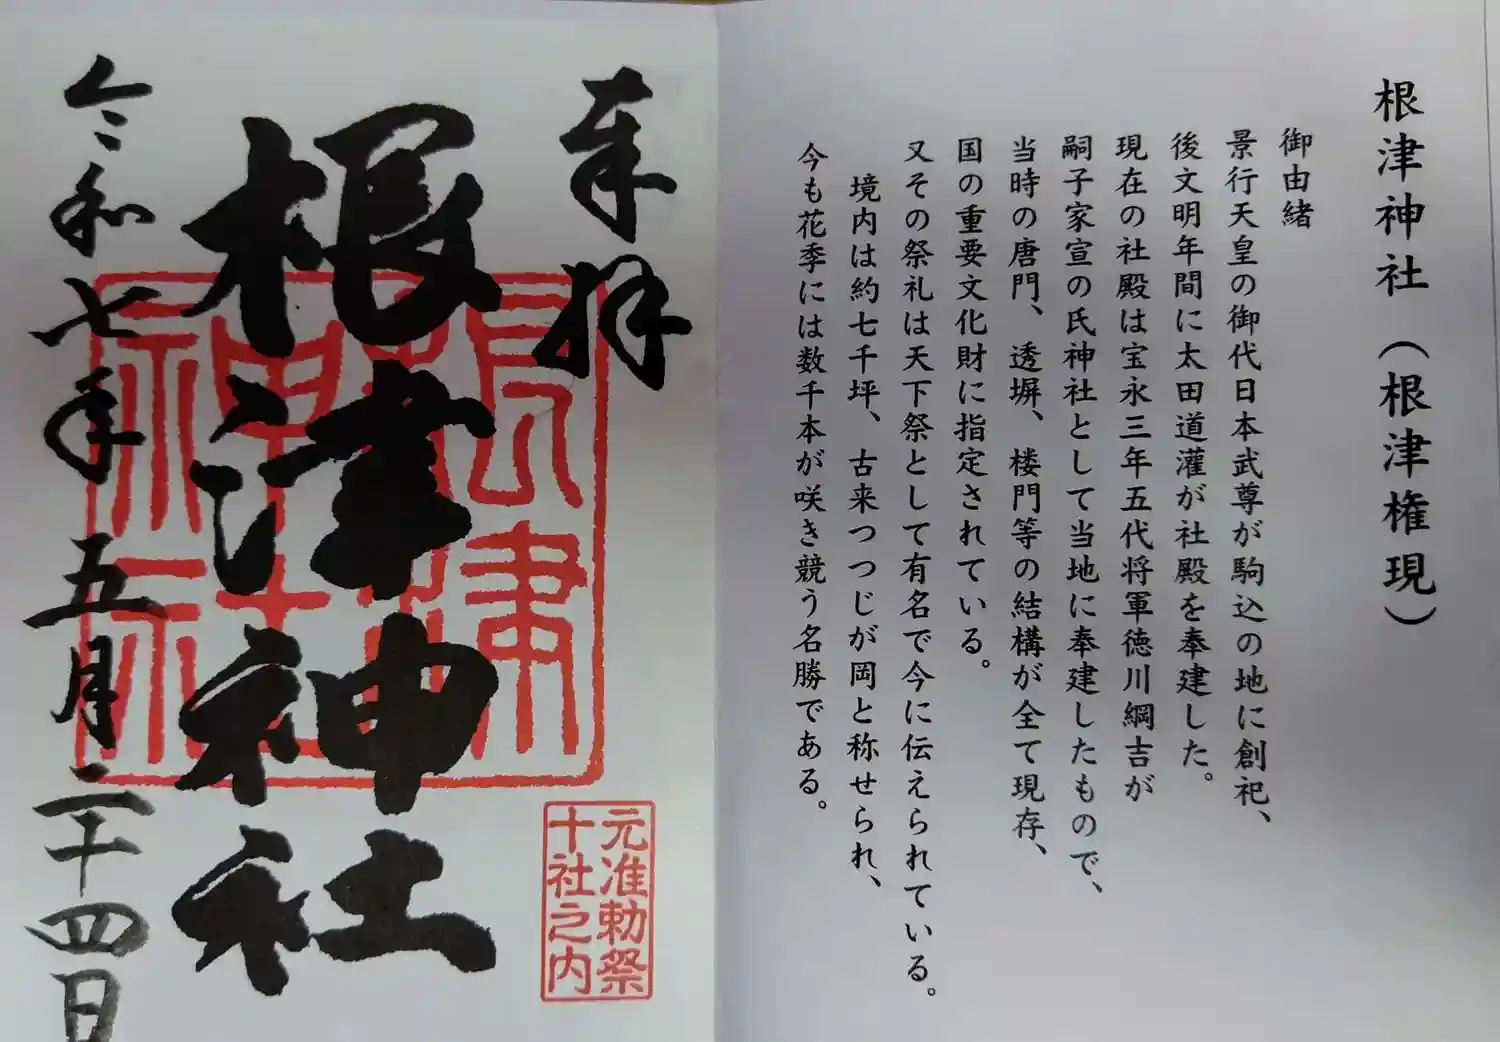 根津神社（根津権現）
御由緒
景行天皇の御代日本武尊が駒込の地に創祀、
後文明年間に太田道灌が社殿を奉建した。
現在の社殿は宝永三年五代将軍徳川綱吉が
嗣子家宣の氏神社として当地に奉建したもので、
当時の唐門、透塀、楼門等の結構が全て現存、
国の重要文化財に指定されている。
又その祭礼は天下祭として有名で今に伝えられている。
境内は約七千坪、古来つつじが岡と称せられ、
今も花季には数千本が咲き競う名勝である。
奉拝
元准勅祭
十社之内
根津神社
根津
神社
令和七年五月二十四日